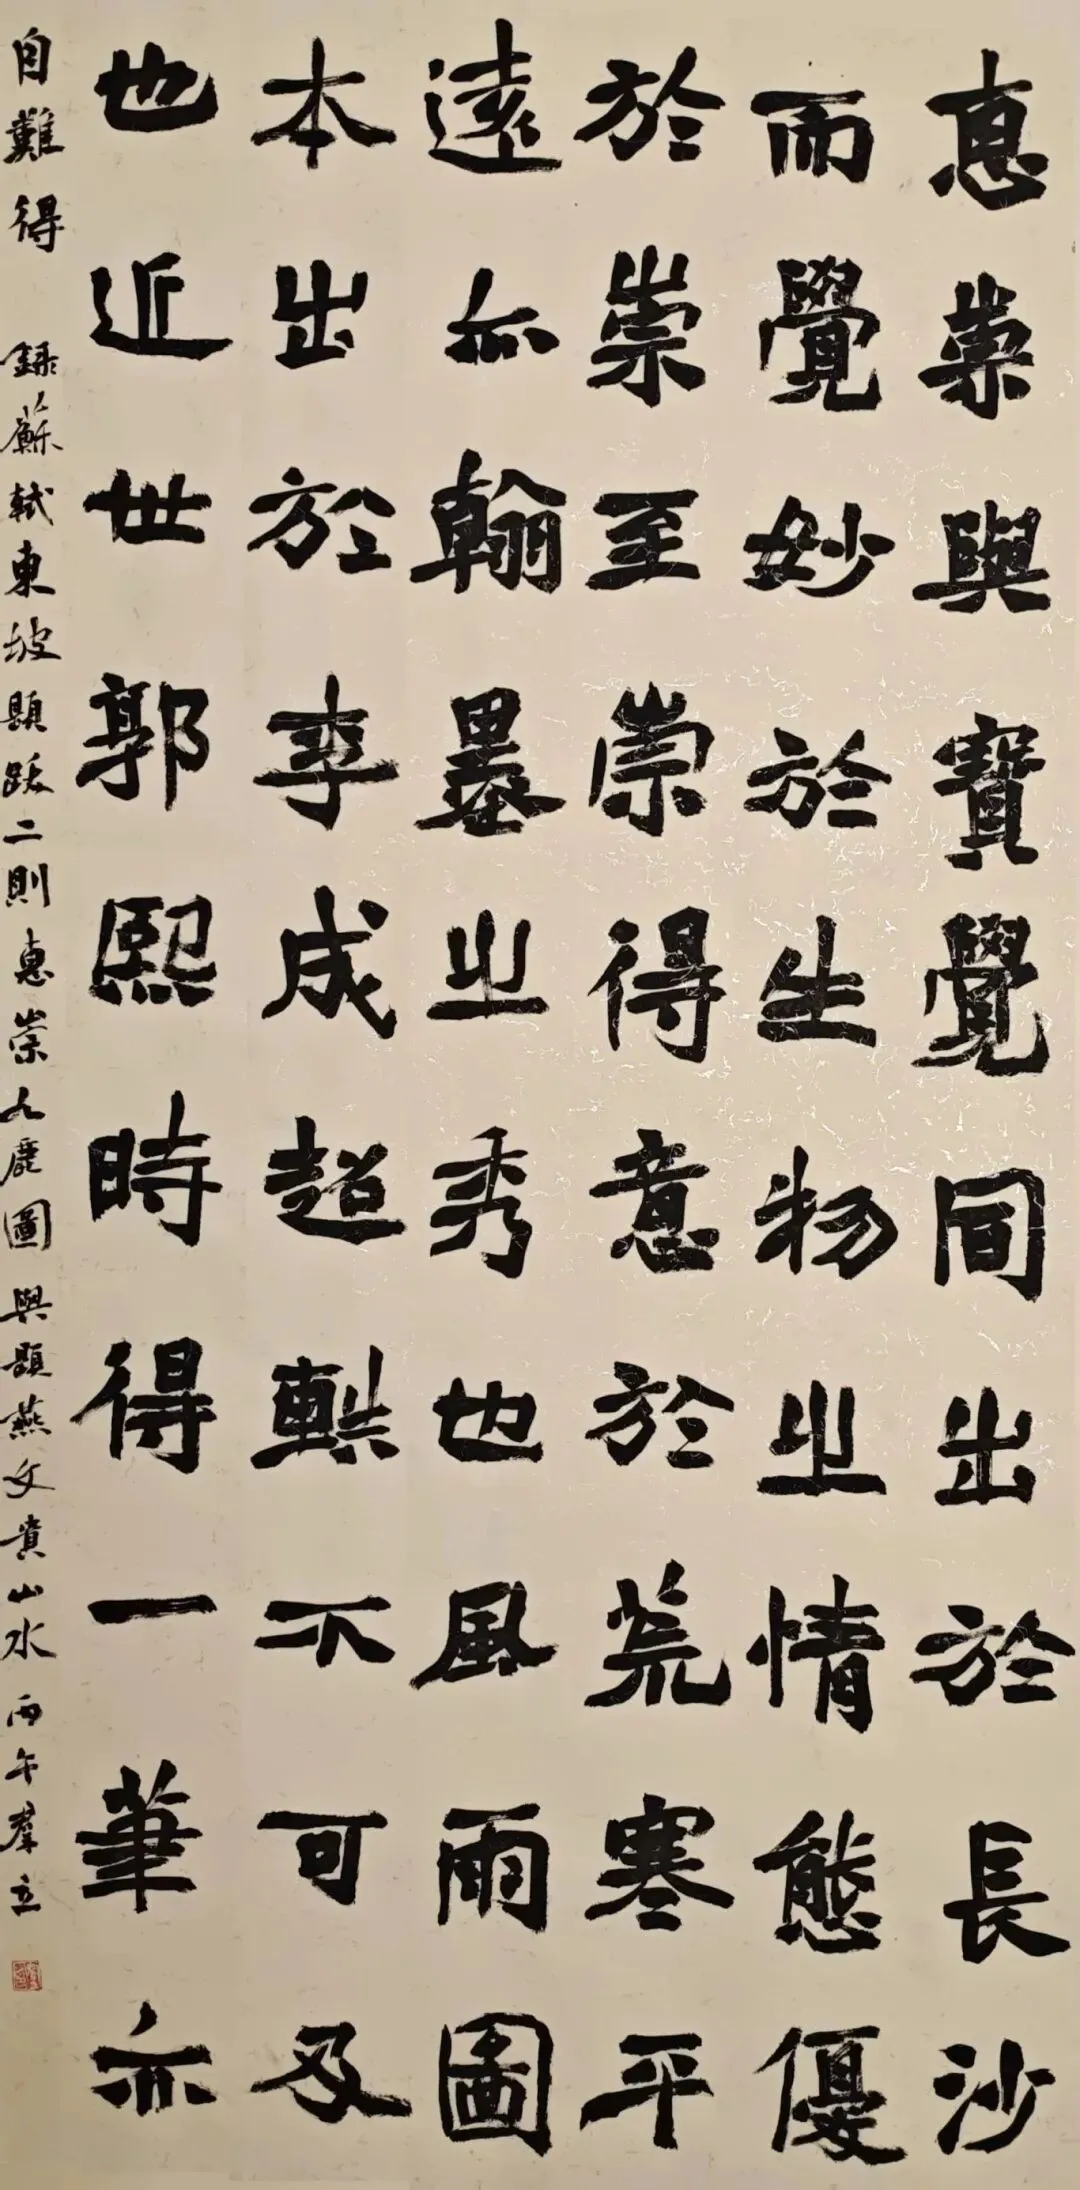 惠崇與寶覺同出於長沙
而覺妙於生物之情態優
於崇至崇得意於荒寒平
遠亦翰墨之秀也風雨圖
本出於李成超軼不可及
也近世郭熙時得一筆亦
自難得 錄蘇軾東坡題跋二則惠崇九鹿圖與題燕文貴山水 丙午羣立